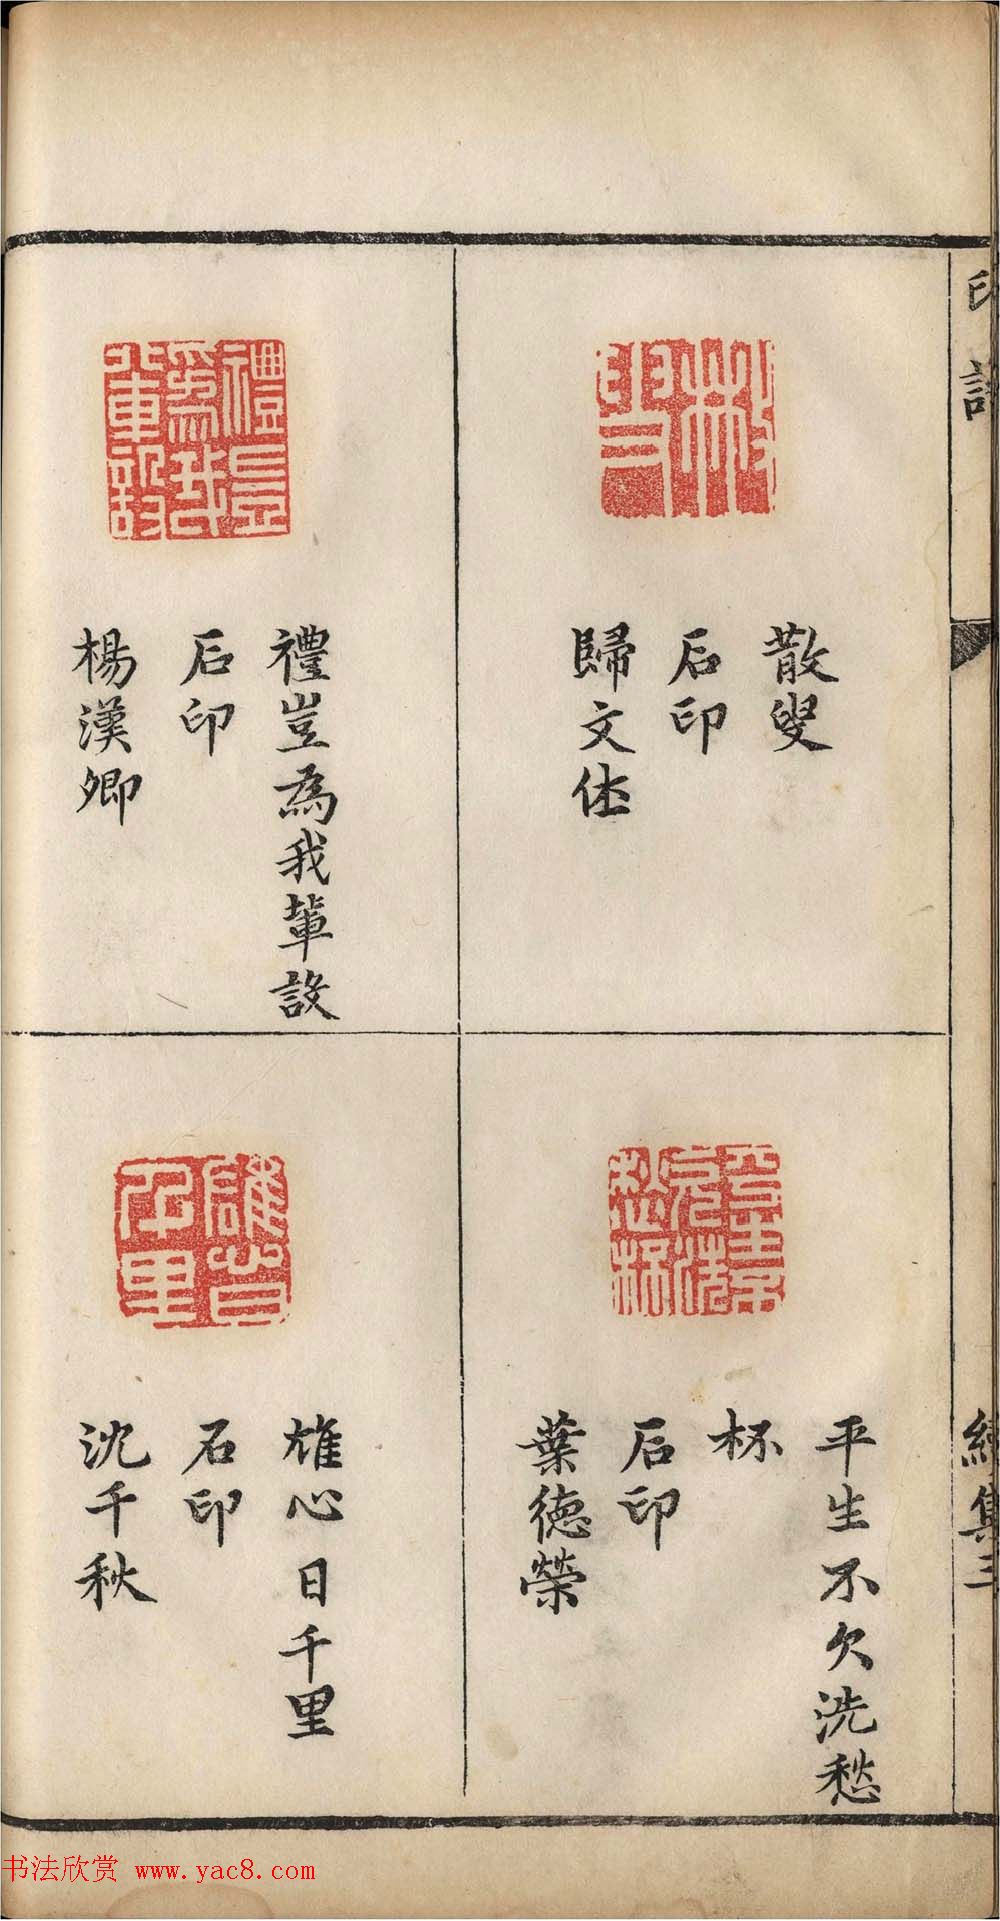 印
散叟
石印
歸文休
禮豈為我輩設
石印
楊漢卿
平生不欠洗愁
杯
石印
葉德榮
雄心日千里
石印
沈千秋
續集三
书法欣赏 www.yac8.com